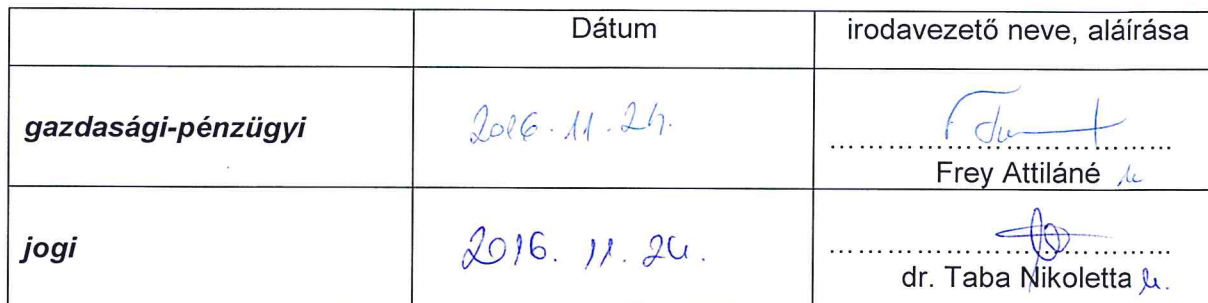 Dátum
irodavezető neve, aláírása
gazdasági-pénzügyi
2016. 11. 24.
……………………………
Frey Attiláné
jogi
2016. 11. 24.
……………………………
dr. Taba Nikoletta